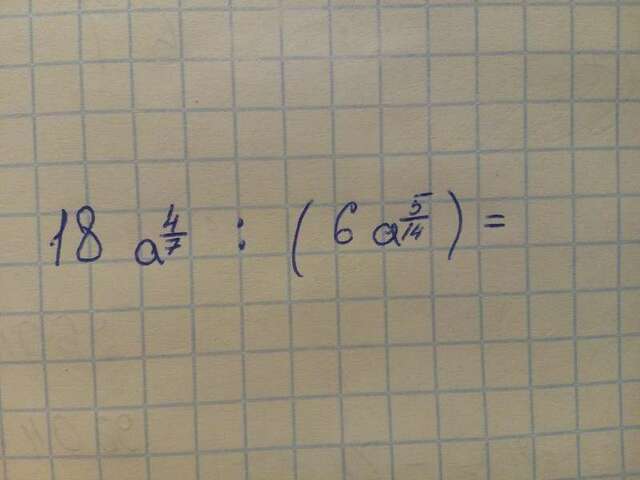 18 a^{4/7} : ( 6 a^{5/14} ) =